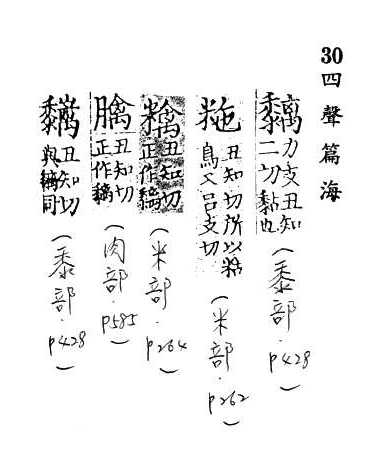 30四聲篇海
黐力支丑知二切黏也(黍部.p428)
丑知切所以粘鳥又呂支切(米部.p262)
丑知切正作黐(米部.p264)
丑知切正作黐(肉部.p585)
丑知切與黐同(黍部.p428)